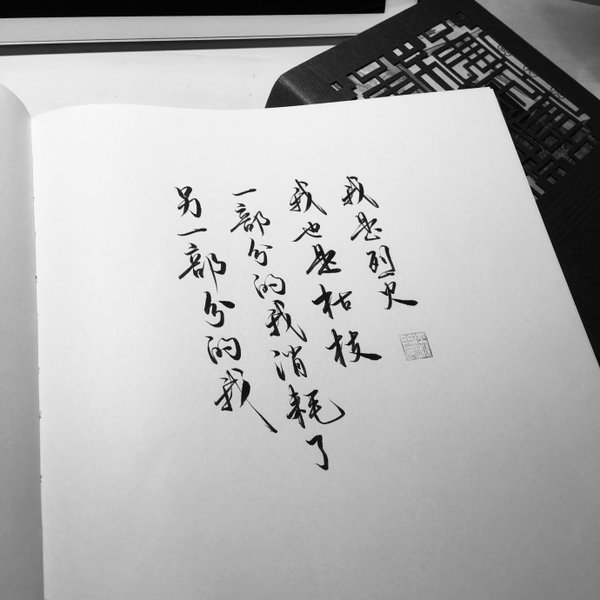 我是烈火
我也是枯枝
一部分的我消耗了
另一部分的我